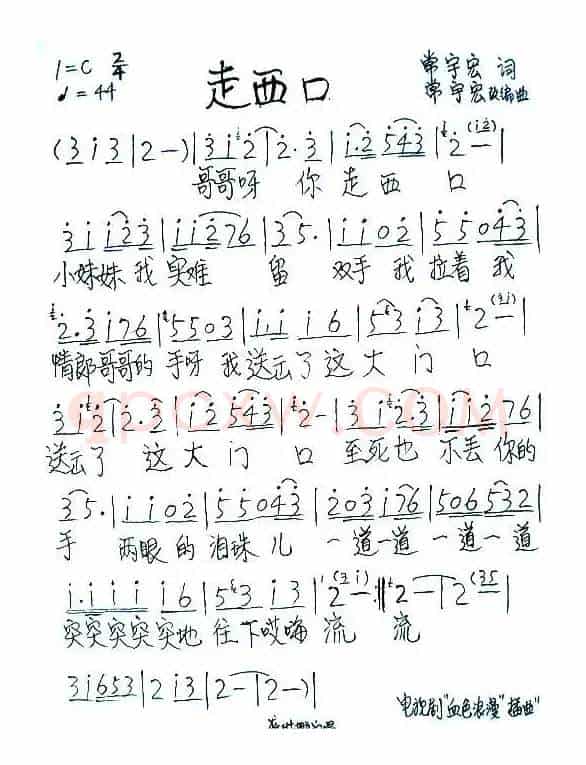 走西口
1=C 2/4
♩=44
常宇宏 词
常宇宏 改编曲
(3 i 3 | 2 - ) | 3 i 2 | 2 · 3 | i · 2 5 4 3 | 2 - (i 2) |
哥哥呀 你 走 西 口
3 i i 2 3 | i i 2 7 6 | 3 5 · | i i 0 2 | 5 5 0 4 3 |
小妹妹 我 实难 留 双手 我 拉着 我
2 · 3 i 7 6 | 5 5 0 3 | i · i i 6 | 5 3 i 3 | 2 - (3 i) |
情郎哥哥的 手呀 我 送去了 这 大 门 口
3 i 2 | 2 · 3 | i 2 5 4 3 | 2 - | 3 i 2 3 | i i 2 7 6 |
送去了 这 大 门 口 至死也 不丢 你的
3 5 · | i i 0 2 | 5 5 0 4 3 | 2 0 3 i 7 6 | 5 0 6 5 5 3 2 |
手 两眼 的 泪珠 儿 一道一道 一道一道
i · i i i i 6 | 5 3 i 3 | 2 - (3 i) :‖ 2 - | 2 (3 5
突突突突突地 往下哎嗨 流 流
3 i 6 5 3 | 2 i 3 | 2 - | 2 - ) |
电视剧"血色浪漫"插曲"
qpcxw.COM